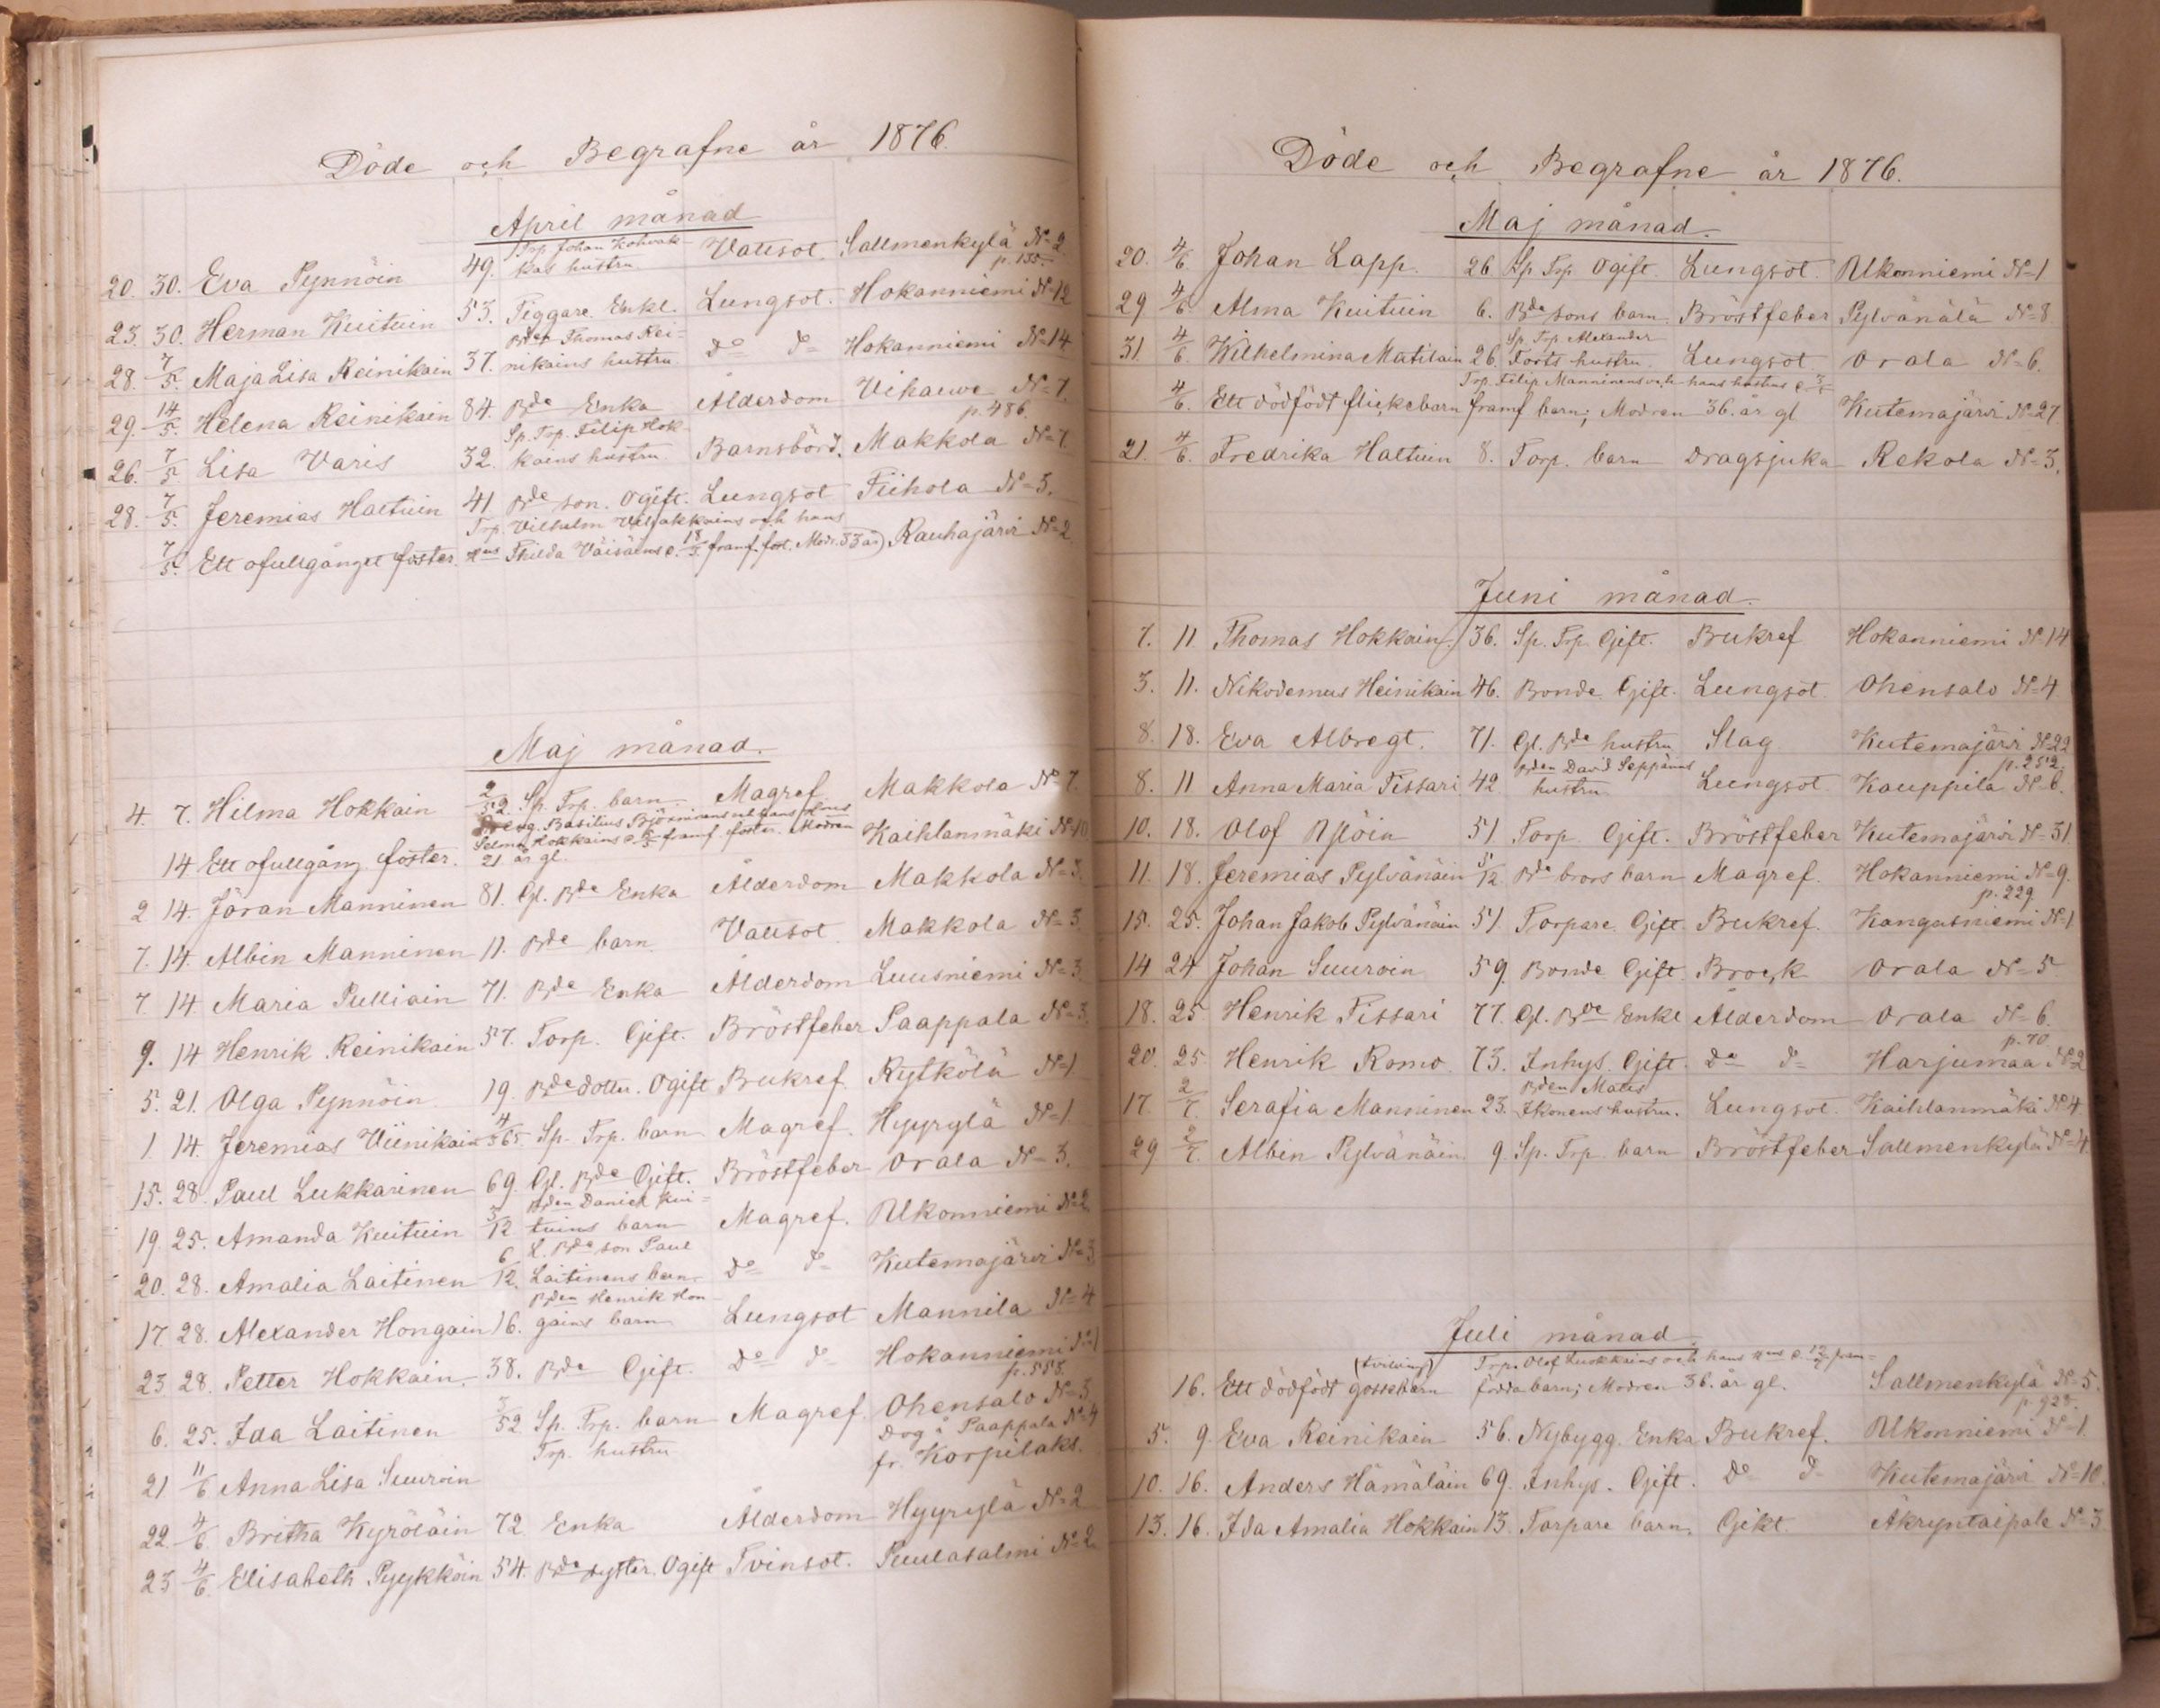 Döde och Begrafne år 1876.
April månad
20. 30. Eva Pynnöin 49. Trp Johan Kohvak-
kas hustru Vattsot. Sallmenkylä N=2
p. 155.
23. 30. Herman Kuituin 53. Tiggare. Enkl. Lungsot. Hokanniemi N=12
28. 7/5. Maja Lisa Reinikain 37. Bden Thomas Rei-
nikains hustru do do Hokanniemi N=14
29. 14/5. Helena Reinikain 84. Bde Enka Ålderdom Vihawe N=7.
p. 486.
26. 7/5 Lisa Varis 32. Sp. Trp. Filip Hok-
kains hustru. Barnsbörd. Makkola N=7
28. 7/5. Jeremias Haltuin 41 Bde son. Ogift. Lungsot Tiihola N=5.
7/5. Ett ofullgånget foster. Trp. Vilhelm Valjakkains och hans
Hus Thilda Väisäins e. 18/3 framf. fost. Modr. 33 år) Rauhajärvi N=2
Maj månad.
4. 7. Hilma Hokkain 2/52. Sp. Trp. barn Magref. Makkola N=7.
14 Ett ofullgång. foster. Basilius Björninens och hans Hus
Selma Hokkains e. framf. foster. Modren
21 år gl. Kaihlanmäki N=10
2 14. Jöran Manninen 81. Gl. Bde Enka Ålderdom Makkola N=3.
7. 14. Albin Manninen 11. Bde barn Vattsot Makkola N=3.
7 14. Maria Pulliain 71. Bde Enka Ålderdom Luusniemi N=3.
9. 14 Henrik Reinikain 57. Torp. Gift. Bröstfeber Paappala N=3.
5. 21. Olga Pynnöin 19. Bde dotter. Ogift Bukref. Rytkölä N=1
1 14. Jeremias Viinikain 4/365 Sp. Trp. barn Magref. Hyyrylä N=1.
15. 28. Paul Lukkarinen 69. Gl. Bde Gift. Bröstfeber Orala N=3.
19. 25. Amanda Kuituin 3/12 Bden Daniel Kui-
tuins barn Magref. Ukonniemi N=2
20. 28. Amalia Laitinen 6/12. L. Bde son Paul
Laitinens barn do do Kutemajärvi N=3
17 28. Alexander Hongain 16. Bden Henrik Hon-
gains barn Lungsot Mannila N=4
23 28. Petter Hokkain. 38. Bde Gift. do do Hokanniemi N=1
p. 553.
6. 25. Ida Laitinen 3/52 Sp. Trp. barn Magref. Ohensalo N=3.
21 11/6 Anna Lisa Suuroin Trp. hustru dog å Paappala N=4
fr. Korpilaks.
22. 4/6. Britha Kyröläin 72. Enka Ålderdom Hyyrylä N=2
23 4/6. Elisabeth Pyykköin 54. Bde sytter. Ogift Tvinsot. Puulasalmi N=2.
Döde och Begrafne år 1876.
Maj månad.
20. 4/6 Johan Lapp. 26 Sp Trp Ogift. Lungsot. Ukonniemi N=1
29 4/6 Alma Kuituin 6. Bde sons barn Bröstfeber Pylvänälä N=8
31. 4/6. Wilhelmina Matilain 26. Sp. Trp. Alexander
Torsts hustru Lungsot Orala N=6.
4/6. Ett dödfödt flickebarn Trp. Filip Manninens och hans hustrus e.
framf barn; Modren 36. år gl Kutemajärvi N=27
21. 4/6. Fredrika Haltuin 8. Torp. barn Dragsjuka Rekola N=3.
Juni månad.
7. 11. Thomas Hokkain. 36. Sp. Trp. Gift. Bukref Hokanniemi N=14
3. 11. Nikodemus Heinikain 46. Bonde Gift. Lungsot. Ohensalo N=4
8. 18. Eva Albregt. 71. Gl. Bde hustru Slag Kutemajärvi N=22
p. 252.
8. 11 Anna Maria Tissari 42. Bden David Seppäins
hustru Lungsot Kauppila N=6.
10. 18. Olof Ylöin 51 Torp. Gift. Bröstfeber Kutemajärvi N=31
11. 18. Jeremias Pylvänäin 5/12. Bde brors barn Magref. Hokanniemi N=9.
p. 229.
15. 25. Johan Jakob Pylvänäin 51. Torpare. Gift. Bukref. Kangasniemi N=1
14 24 Johan Suuroin 59. Bonde Gift. Brock Orala N=5
18. 25 Henrik Tissari 77. Gl. Bde Enkl Ålderdom Orala N=6.
p. 70.
20. 25. Henrik Romo. 73. Inhys. Gift. do do Harjumaa N=2
17. 2/7. Serafia Manninen 23. Bden Mats
Ikonens hustru. Lungsot. Kaihlanmäki N=4
29 2/7. Albin Pylvänäin. 9. Sp. Trp barn Bröstfeber Sallmenkylä N=4.
Juli månad.
16. Ett dödfödt gossebarn (tvilling) Trp. Olof Luokkains och hans Hus e. 12/7 fram-
födda barn; Modren 36. år gl. Sallmenkylä N=5.
p. 928.
5. 9. Eva Reinikain 56. Nybygg. Enka Bukref. Ukonniemi N=1.
10. 16. Anders Hämäläin 69. Inhys. Gift. do do Kutemajärvi N=10.
13. 16. Ida Amalia Hokkain 13. Torpare barn Gikt. Äkryntaipale N=3